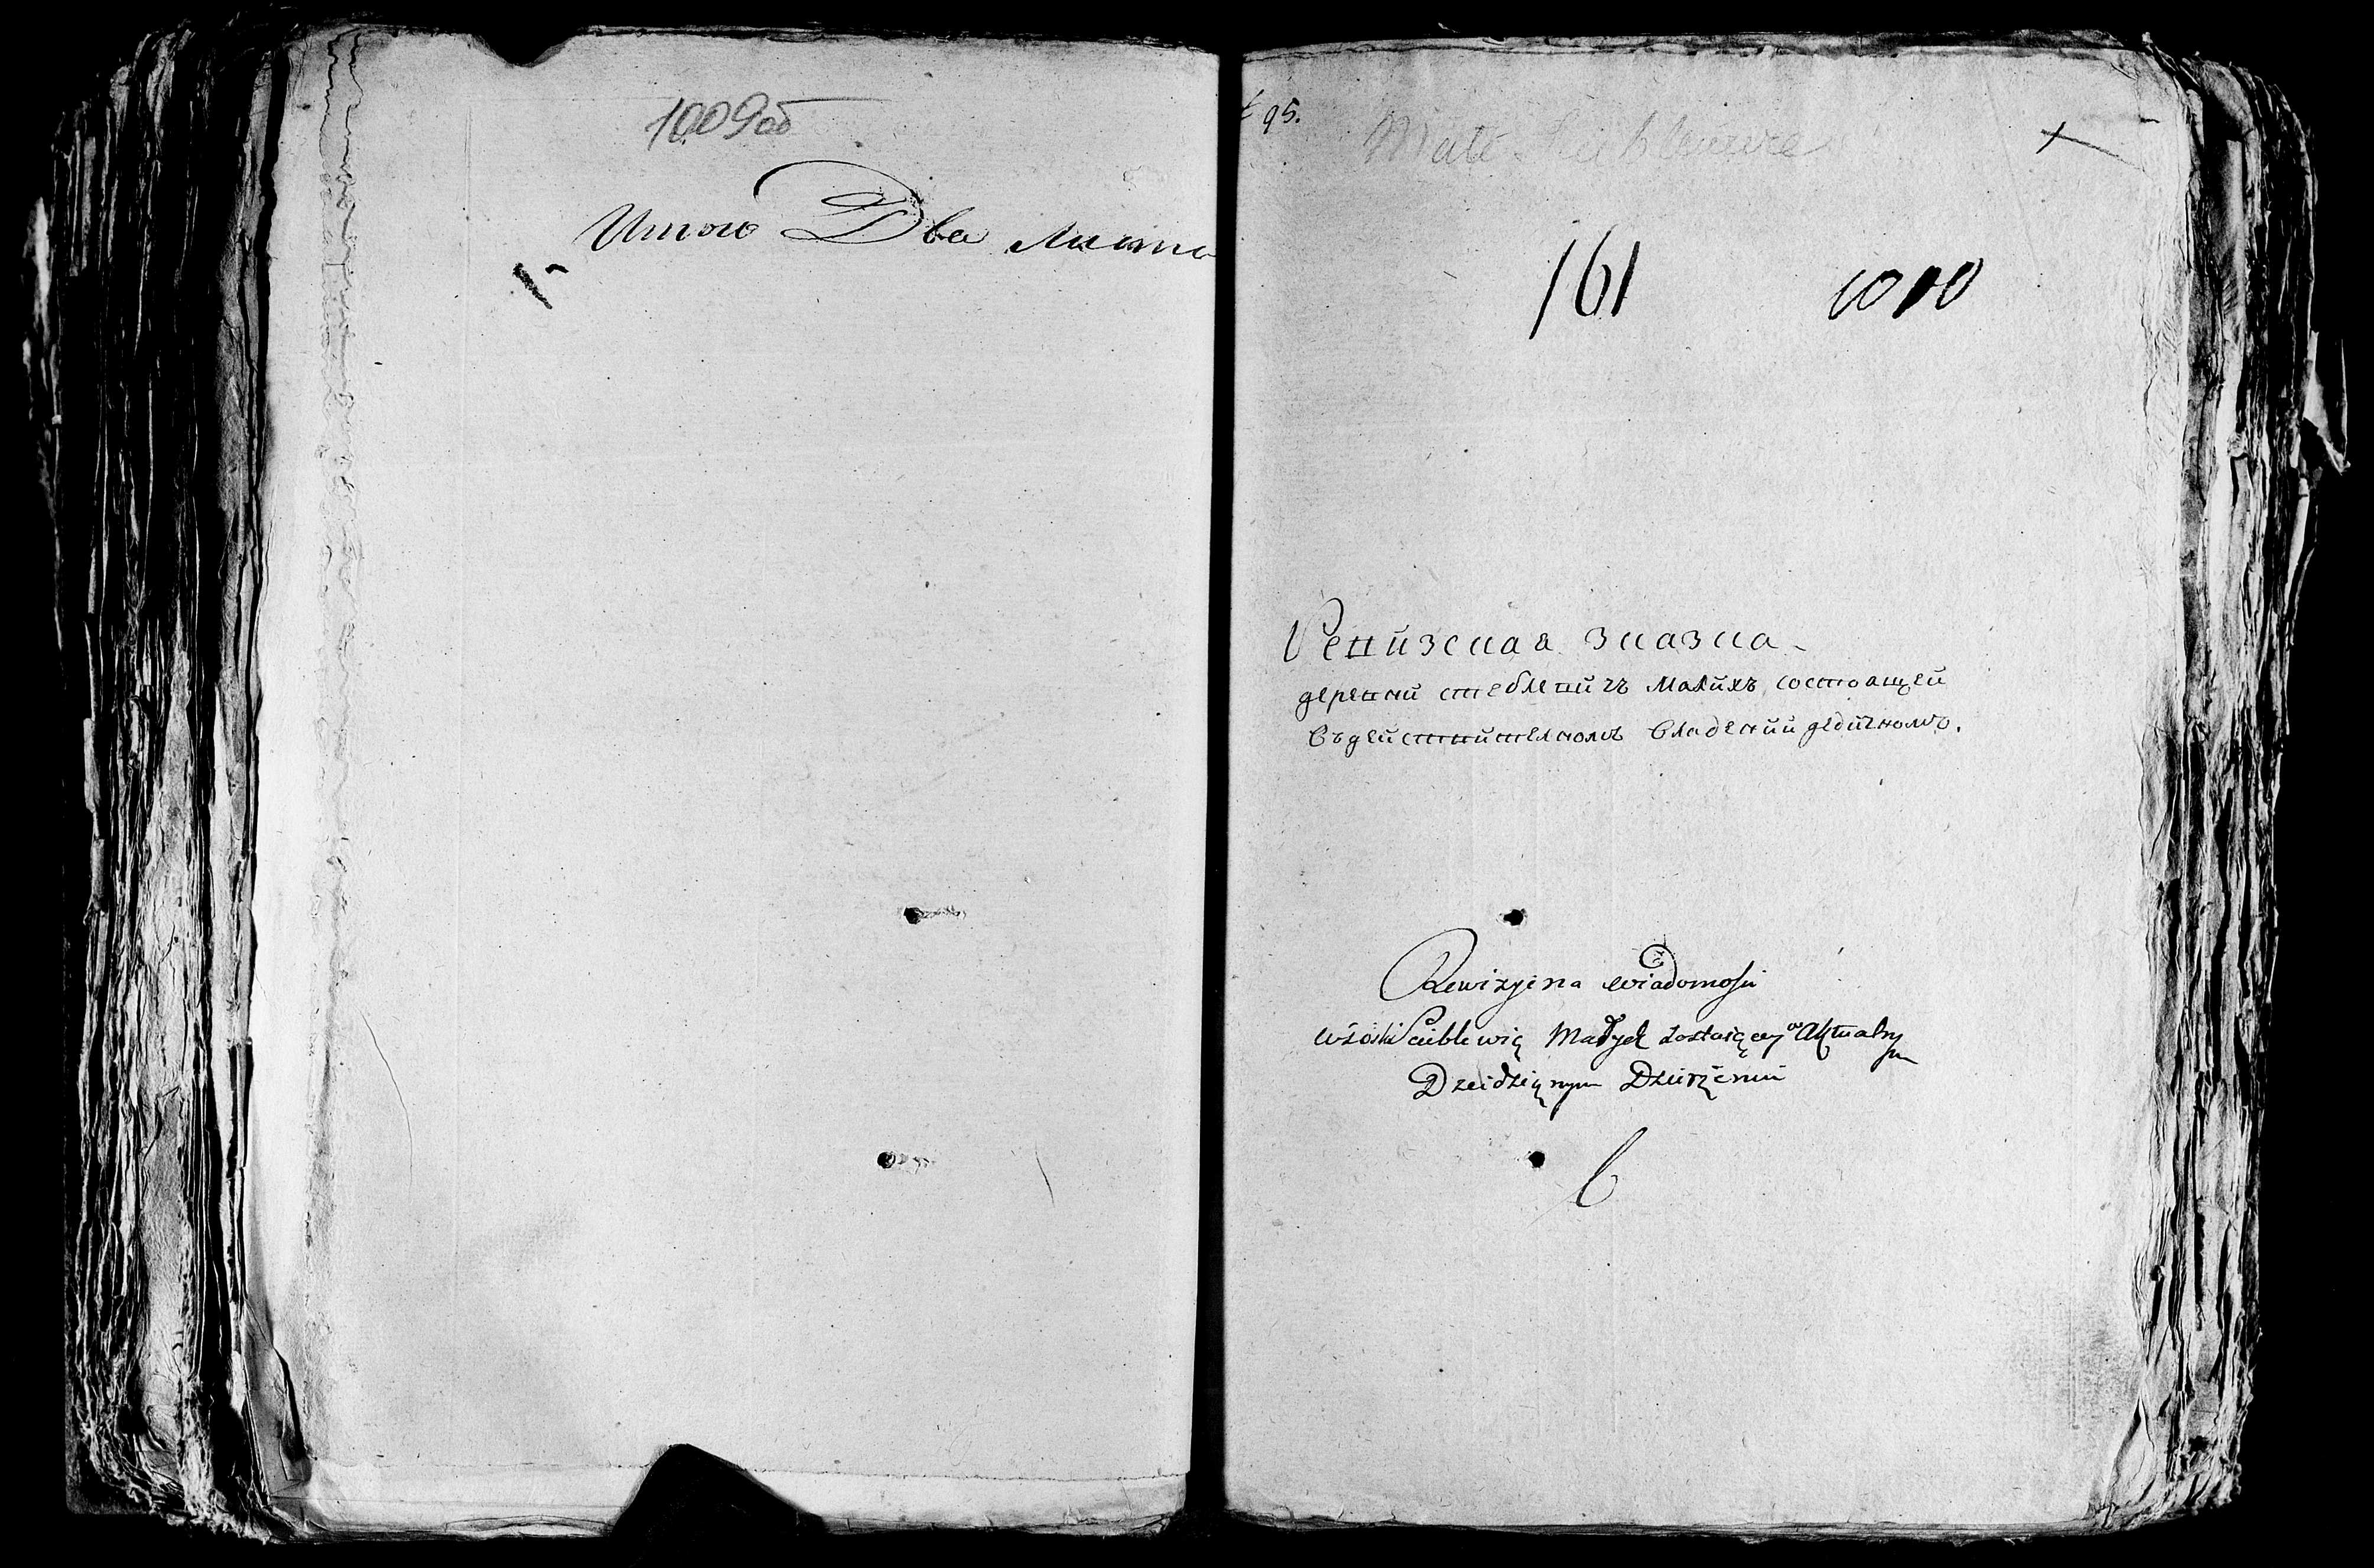 1009об
Итого Два листа
95.
Małe
161 1010
Ревизская сказка
деревни стеблевичъ малихъ состоащей
въдействителномъ владении дедичномъ.
Rewizyina wiadomość
wsioski Scieblewic Małych zostaiącey w Aktualny
m
Dzeidzicznym Dzierżeniu